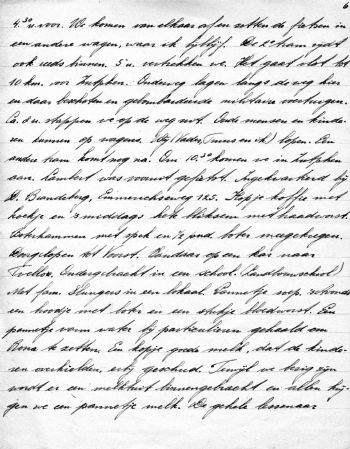 6
4.30 u. voor. We komen van elkaar af en zetten de fietsen in
een andere wagen, waar ik bij blijf. De 2e tram rijdt
ook reeds binnen. 5 u. vertrekken we. Het gaat vlot tot
10 km. voor Zutphen. Onderweg lagen langs de weg hier
en daar beschoten en gebombardeerde militaire voertuigen.
Ca. 8 u. stappen we op de weg uit. Oude mensen en kinde-
ren kunnen op wagens. Wij (Vader, Truus en ik) lopen. Een
andere tram komt nog na. Om 10.30 komen we in Zutphen
aan. Lambert was vooruit gefietst. Ingekwartierd bij
D. Brandenbarg, Emmerikseweg 125. Kopje koffie met
koekje en 's middags hete bliksem met haadworst.
Boterhammen met spek en 1/2 pnd. boter meegekregen.
Doorgelopen tot Voorst. Vandaar op een kar naar
Twello. Ondergebracht in een school. (Landbouwschool)
Met fam. in een lokaal. Pannetje soep, schoonde
een broodje met boter en een stukje bloedworst. Een
pannetje warm water bij particulieren gehaald om
Bona te zetten. En kopje goede melk, dat de kinde-
ren overhielden, erbij geschud. Terwijl we bezig zijn
wordt er een melkbuit binnengebracht en allen krij-
gen we een pannetje melk. De gehele lessenaar